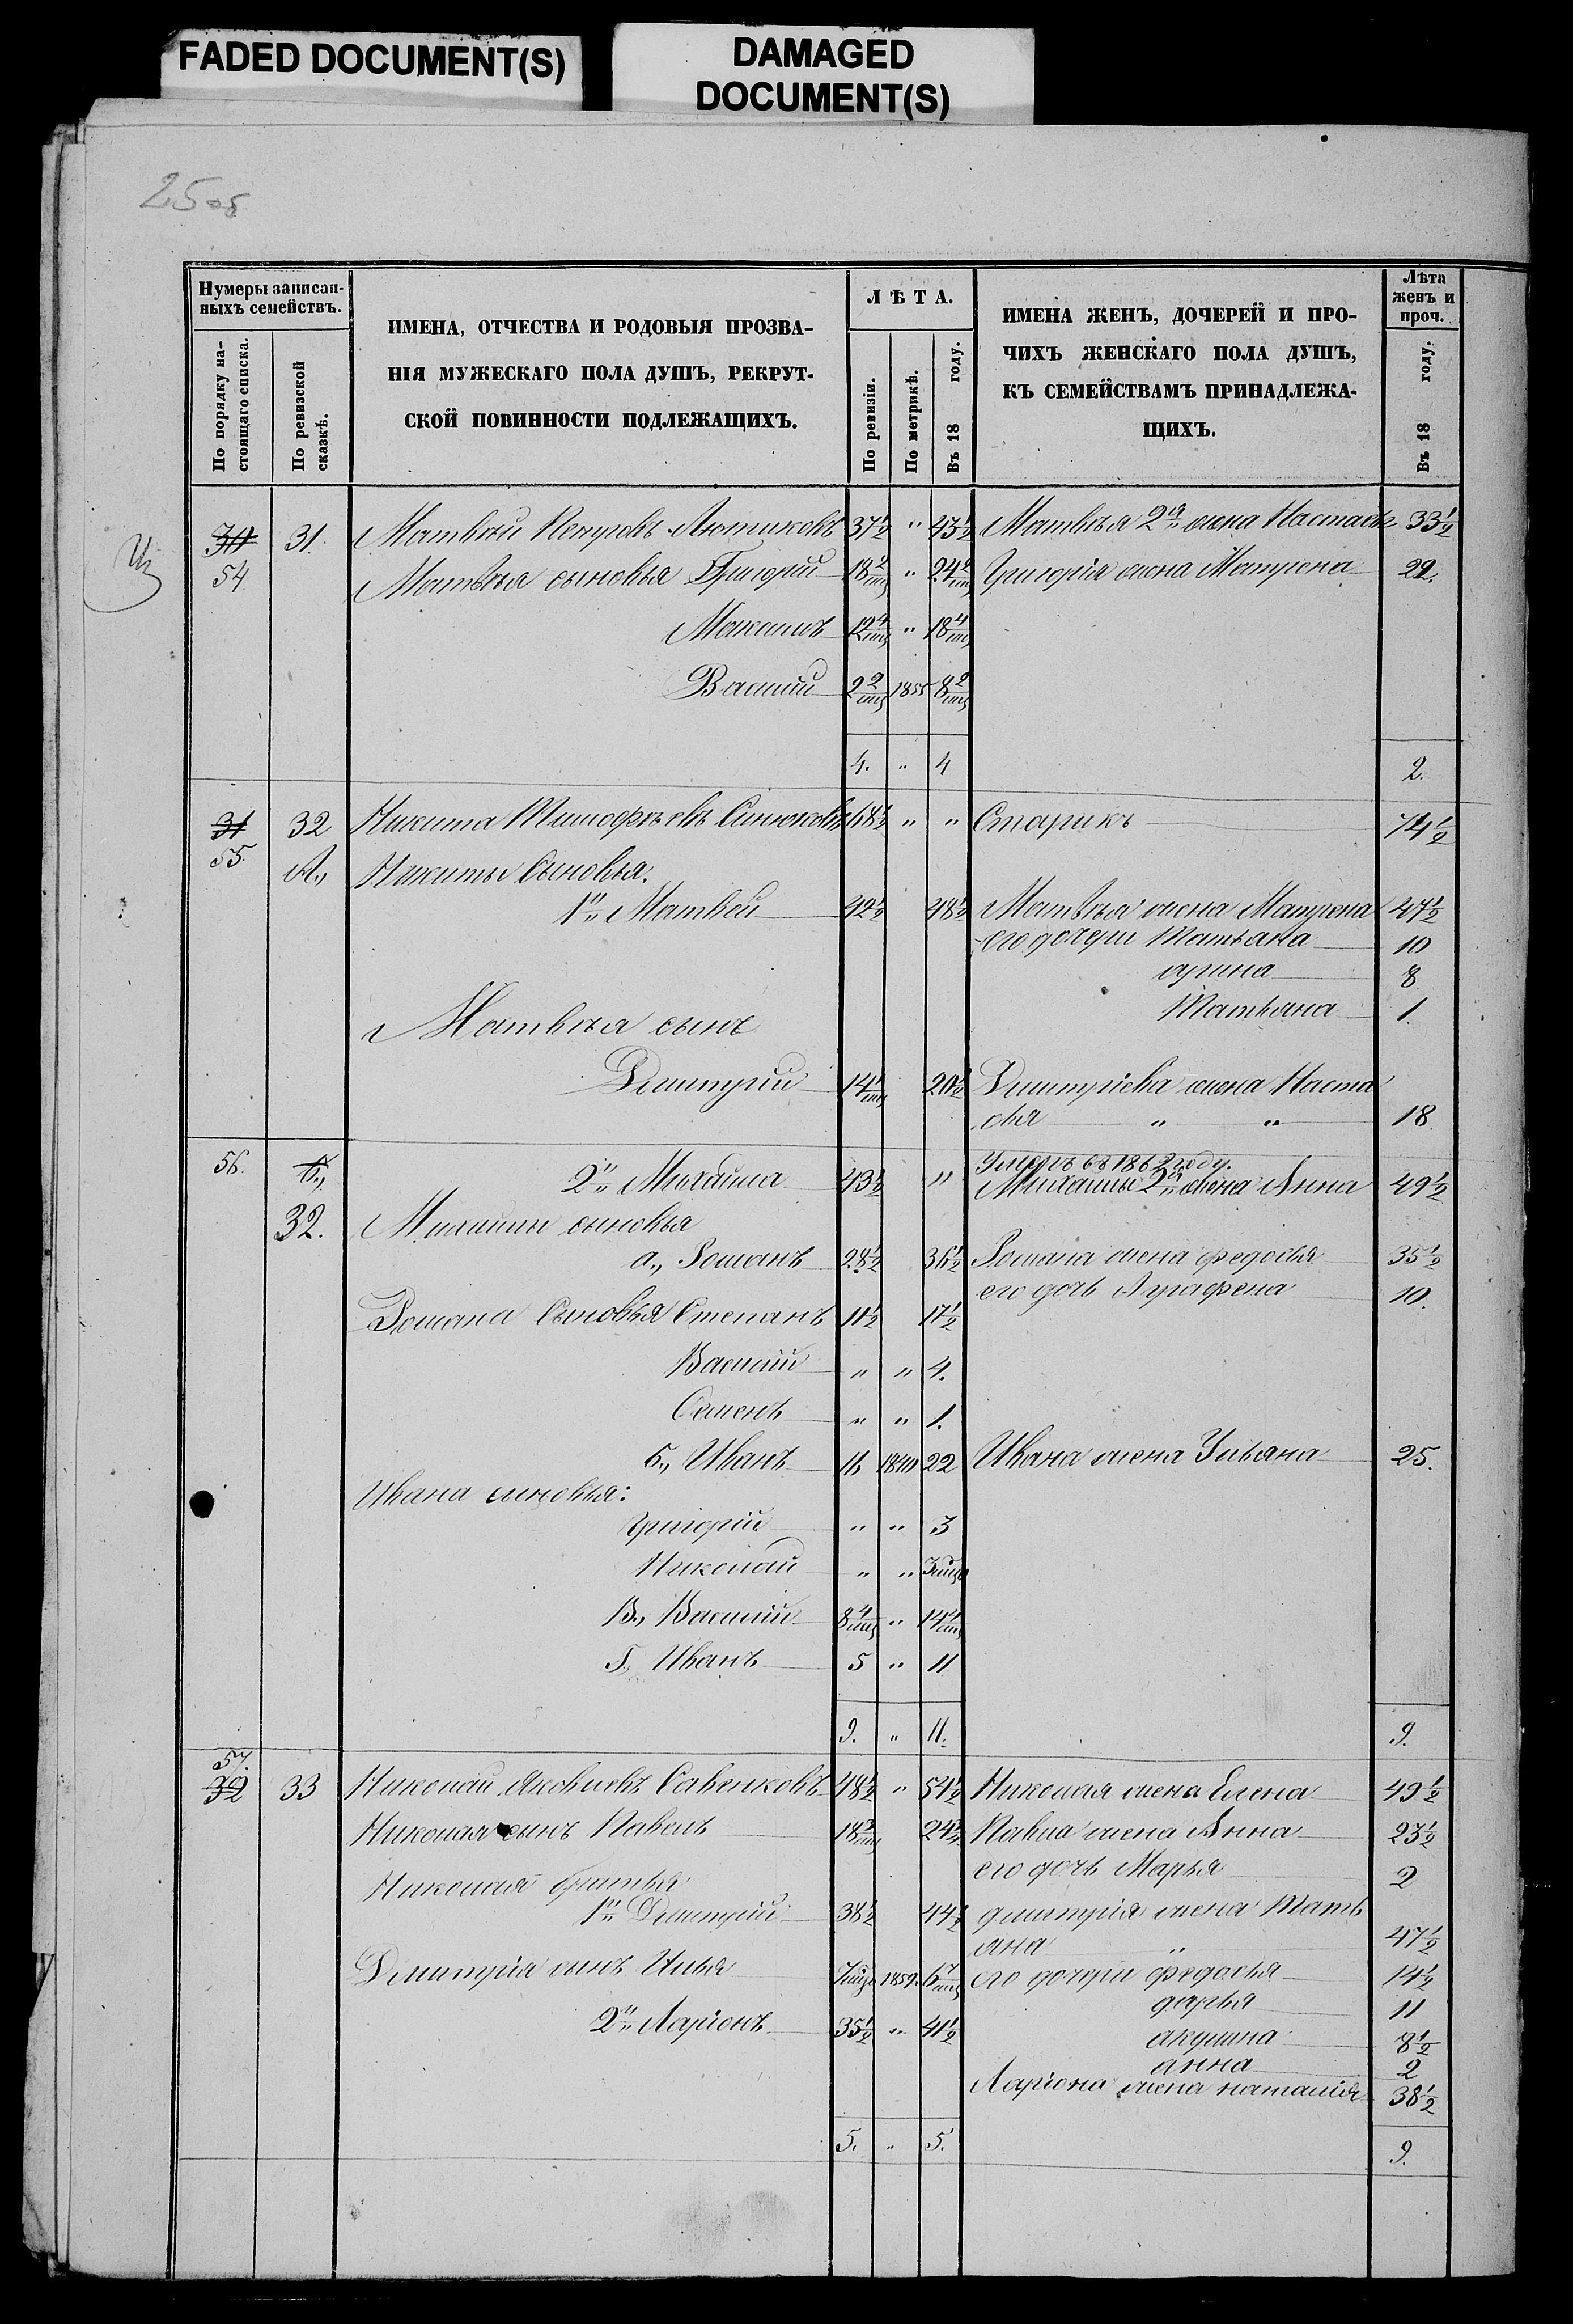 FADED DOCUMENT(S)
DAMAGED
DOCUMENT(S)
25 об
Нумеры записан-
ныхъ семействъ.
По порядку на-
стоящаго списка.
По ревизской
сказкѣ.
ИМЕНА, ОТЧЕСТВА И РОДОВЫЯ ПРОЗВА-
НІЯ МУЖЕСКАГО ПОЛА ДУШЪ, РЕКРУТ-
СКОЙ ПОВИННОСТИ ПОДЛЕЖАЩИХЪ.
ЛѢТА.
По ревизіи.
По метрикѣ.
Въ 18 году.
ИМЕНА ЖЕНЪ, ДОЧЕРЕЙ И ПРО-
ЧИХЪ ЖЕНСКАГО ПОЛА ДУШЪ,
КЪ СЕМЕЙСТВАМЪ ПРИНАДЛЕЖА-
ЩИХЪ.
Лѣта
женъ и
проч.
Въ 18 году.
30 31. Матвѣй 37½ " 43½ Матвѣя 2я жена Настасья 33½
54 Матвѣя сыновья Григорій 18 2/мц " 24 2/мц Григорія жена Матрена 22.
12 4/мц " 18 4/мц
Василій 2 2/мц 1855 8 2/мц
4. " 4 2.
31 32 Никита Тимофѣевъ 68½ " " Старикъ 74½
55. А., Никиты Сыновья.
1й Матвѣй 42½ 48½ Матвѣя жена Матрена 47½
его дочери Татьяна 10
арина 8
Татьяна 1.
Матвѣя сынъ
Дмитрій 14 1/мц 20½ Дмитріева жена Наста
сья " " 18.
Умеръ въ 1862 году.
56. Б., 2й Михайла 43½ " Михайлы 2я жена Анна 49½
32. сыновья
а., Романъ 28½ 36½ Романа жена федосья 35½
его дочь Аграфена 10.
Романа Сыновья Степанъ 11½ 17½
Василій " " 4.
Семенъ " " 1.
б., Иванъ 16 1840 22 Ивана жена Ульяна 25.
Ивана сыновья:
Григорій " " 3
Николай " " 3 мца
В., Василій 8 4/мц " 14 4/мц
Г., Иванъ 5 " 11
9. " 11. 9.
57.
32 33 Николай Яковлевъ Савенковъ 48½ " 54½ Николая жена Елена 49½
Николая сынъ Павелъ 18 3/мц 24½ Павла жена Анна 23½
его дочь Марья 2
Николая братья
1й Дмитрій 38½ 44½ дмитрія жена Тать
яна " 47½
Дмитрія сынъ Илья 7 мцъ 1859. 6 7/мц его дочери федосья 14½
дарья 11
2й Ларіонъ 35½ " 41½
акулина 8½
анна 2
Ларіона жена наталія 38½
5. " 5. 9.